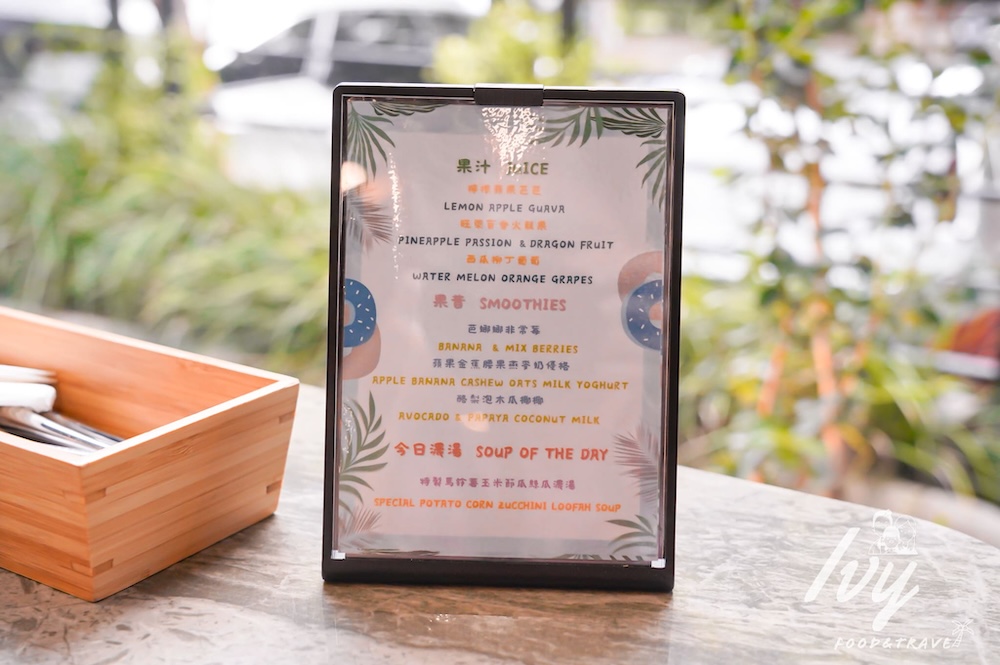 果汁 JUICE
檸檸蘋果芭芭
LEMON APPLE GUAVA
PINEAPPLE PASSION & DRAGON FRUIT
西瓜柳丁葡萄
WATER MELON ORANGE GRAPES
果昔 SMOOTHIES
芭娜娜非常莓
BANANA & MIX BERRIES
蘋果金蕉腰果燕子奶優格
APPLE BANANA CASHEW OATS MILK YOGHURT
酪梨泡木瓜椰椰
AVOCADO & PAPAYA COCONUT MILK
今日濃湯 SOUP OF THE DAY
特製馬鈴薯玉米節瓜絲瓜濃湯
SPECIAL POTATO CORN ZUCCHINI LOOFAH SOUP
Ivy
FOOD&TRAVEL